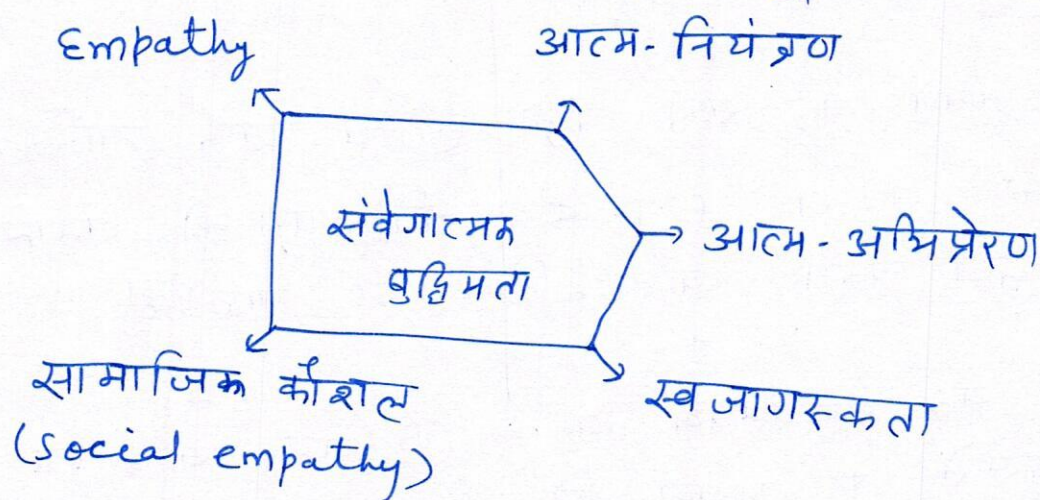 Empathy
आत्म-नियंत्रण
संवेगात्मक
बुद्धिमता
आत्म-अभिप्रेरण
सामाजिक कौशल
(social empathy)
स्वजागरूकता